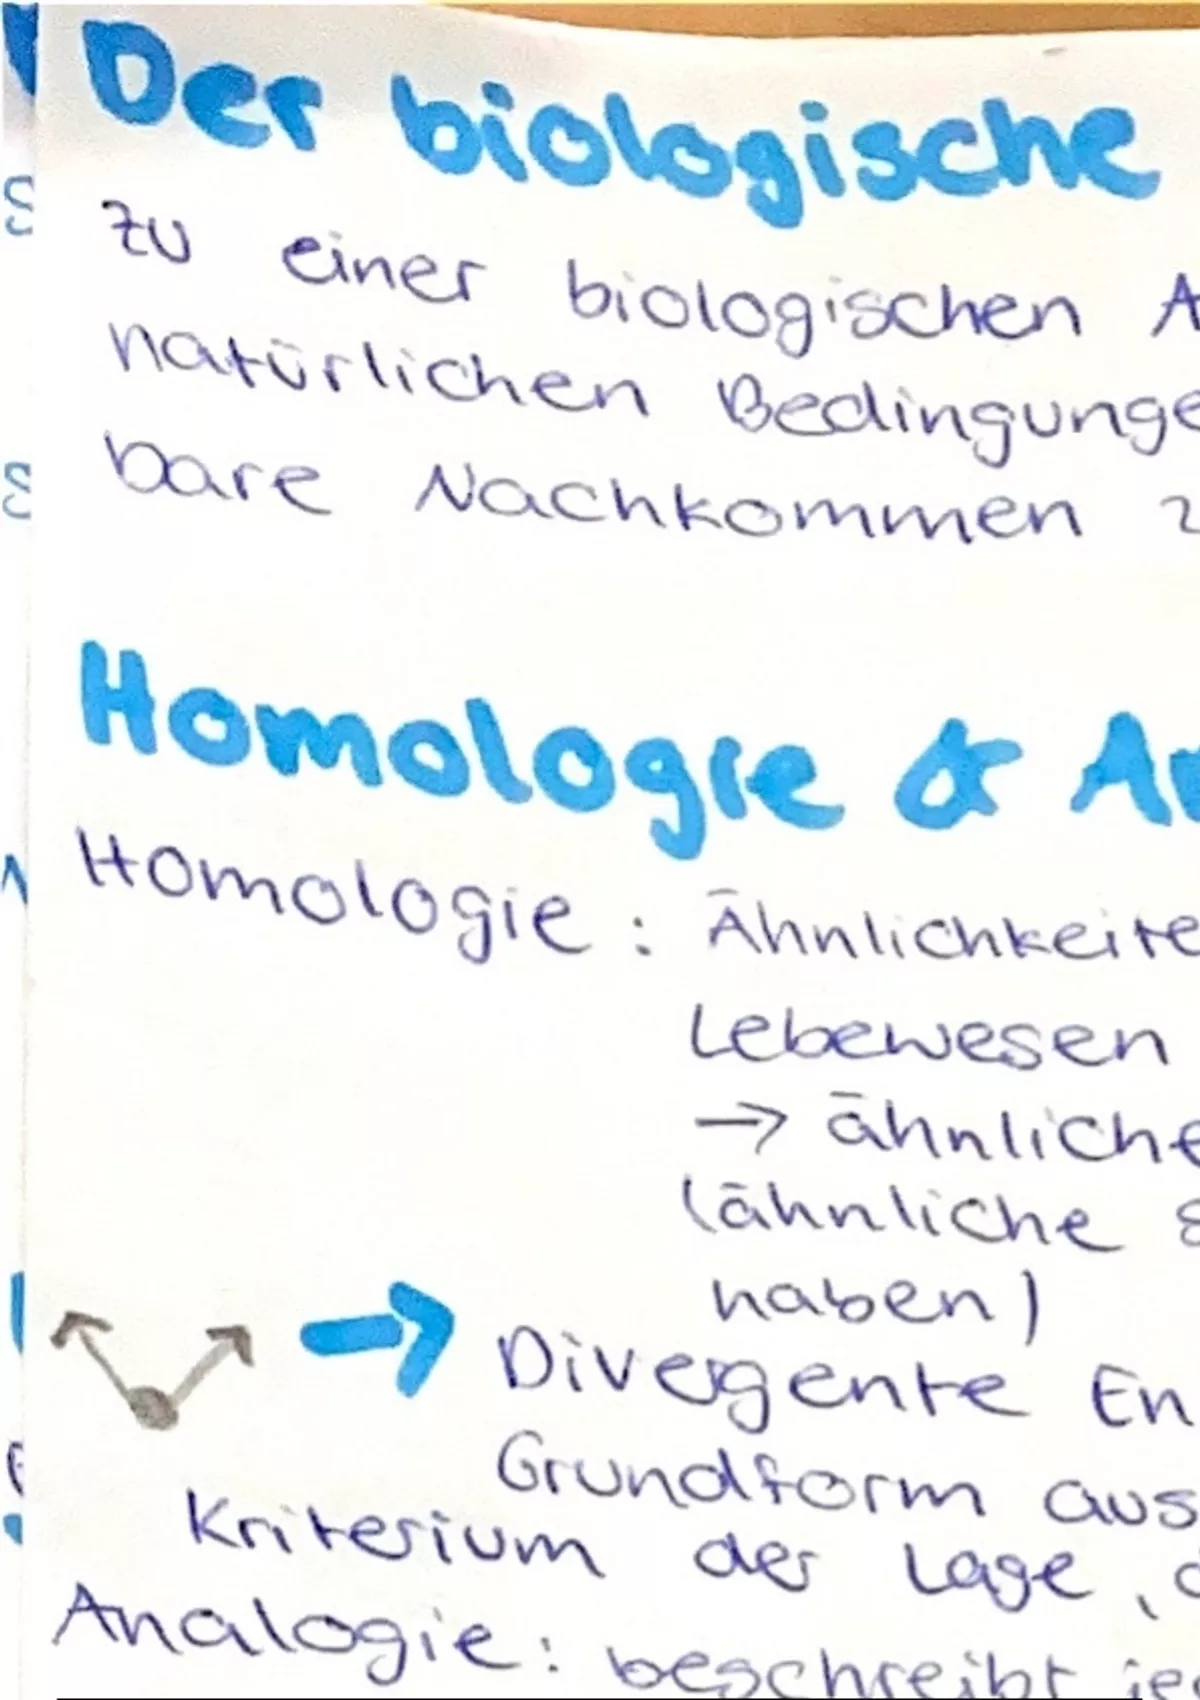 Der biologische
zu einer biologischen A
natürlichen Bedingunge
bare Nachkommen z
Homologie & An
Homologie: Ähnlichkeite
Lebewesen
→ ähnliche
(ähnliche
haben)
→ Divergente En
Grundform aus
Kriterium der Lage,
Analogie: beschreibt je